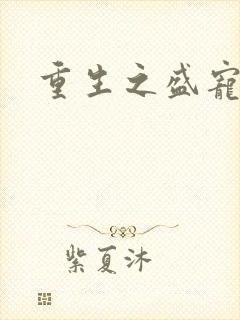 重生之盛宠
紫夏沐